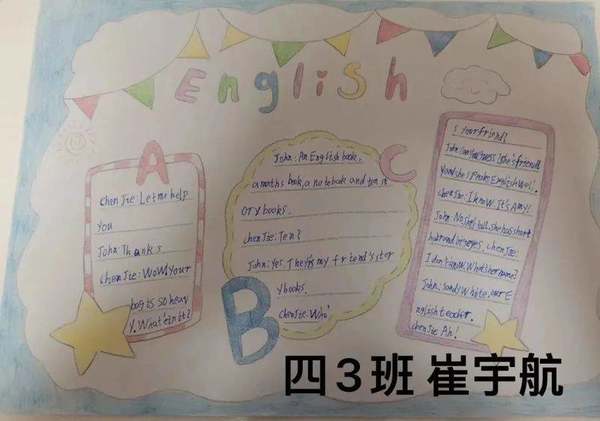 English
A
chen Jie: Let me help
you
John: Thanks
chen Jie: Wow! your
bag is so heav
y. What'sinit?
B
John: An English book,
a maths book, a notebook and ten st
ory books.
chen Jie: Ten?
John: Yes. They's my friend's stor
ybooks.
chen Jie: Who'
C
s your friend?
John:
chen Jie: I know. It's Amy!
John: No, she's tall, she has short
chen Jie:
I don't know. What's her name?
John: Sandy White, our E
nglish teacher.
chen Jie: Ah!
四3班 崔宇航